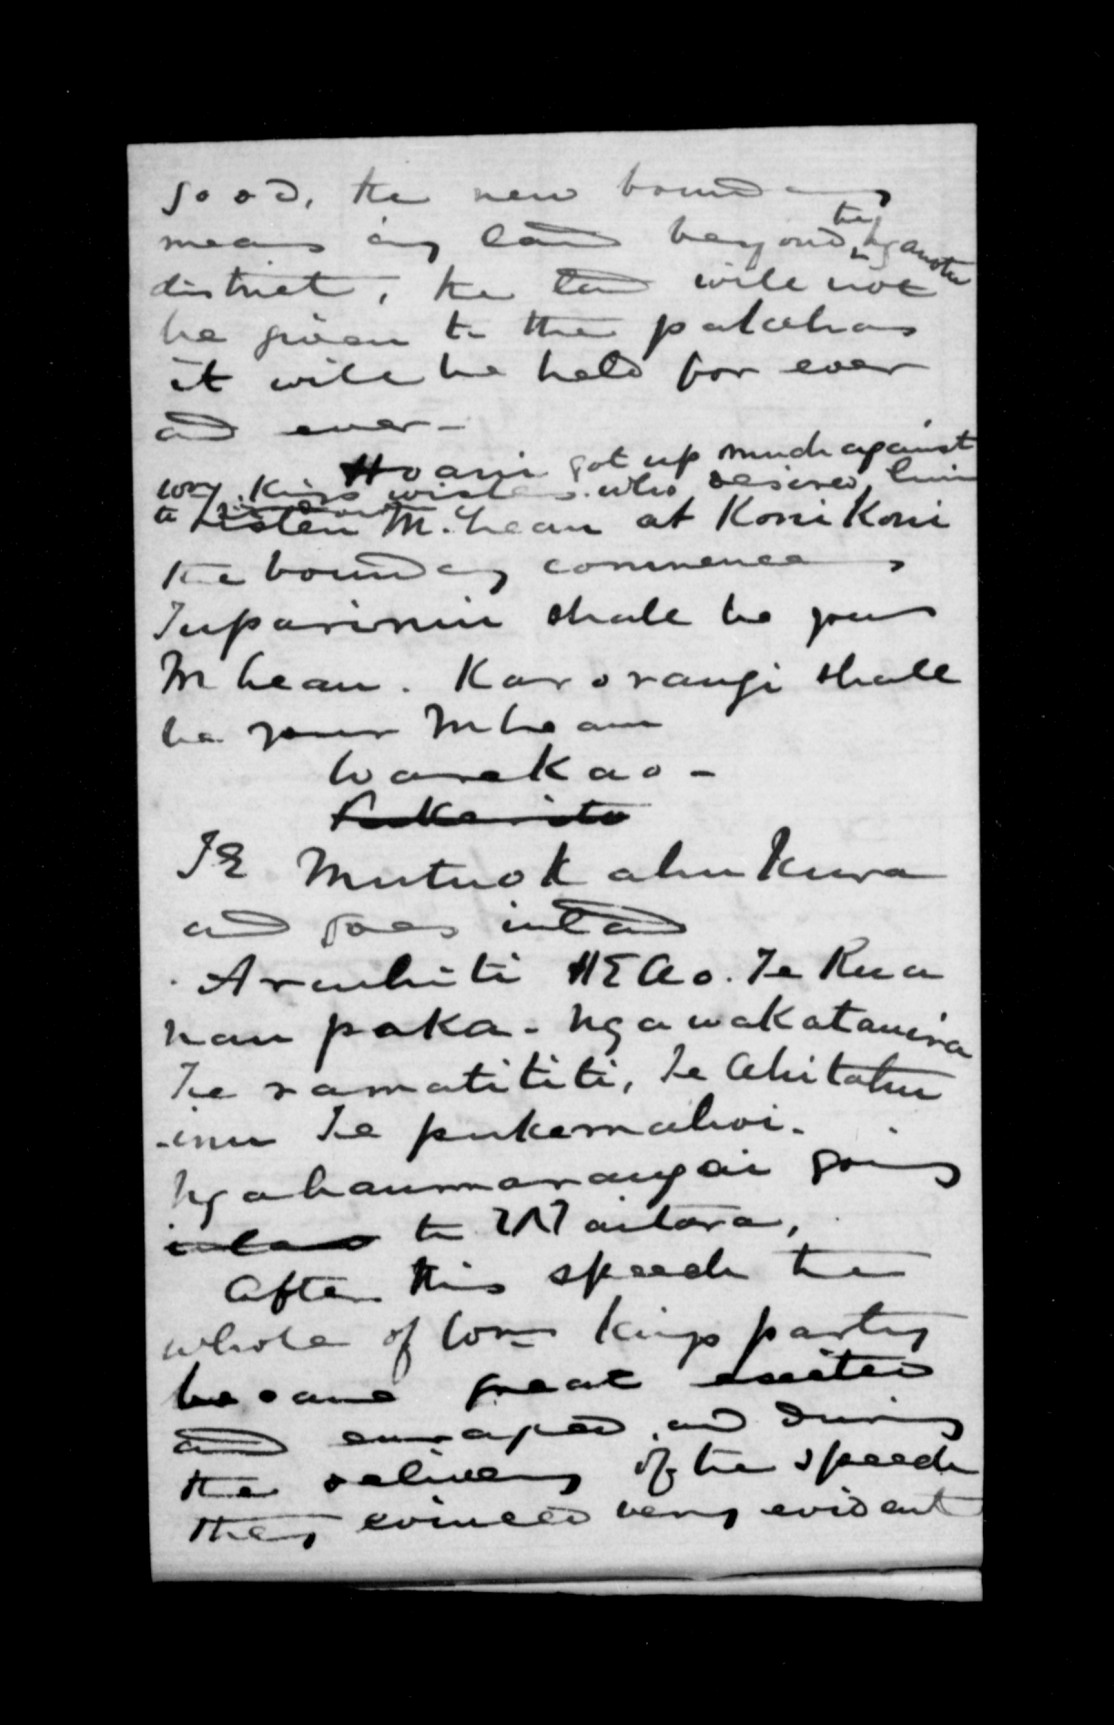 good, the new boundary
means any land beyond the Ngauotu
district, the land will not
be given to the pakehas
it will be held for ever
and ever -
Hoani got up much against
Wm. Kings wishes. who desired him
to Listen McLean at KoniKoni
the boundary commences
Tuparinini shall be yours
McLean. Karorangi shall
be yours McLean
Warekao -
TE MutuoKahuKura
and goes inland
. Arawhiti HEAo. Te Rua
nau paka - Ngawakatauira
Te ramatititi, Te Ahitahu
-inu Te pukemahoi -
Ngahaumarangai going
inland to Waitara,
After this speech the
whole of Wm Kings party
became great excited
and enraged and during
the delivery of the speech
they evinced very evident